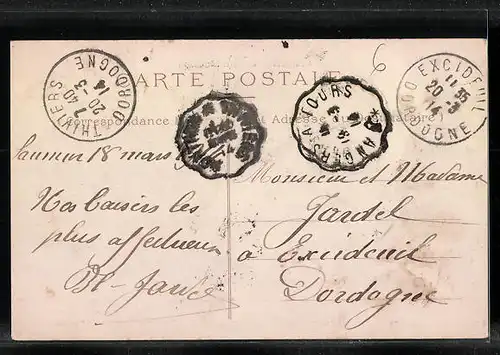 CARTE POSTALE
THIVIERS DORDOGNE
7 40
20 - 3
14
ANGERS A TOURS
EXCIDEUIL DORDOGNE
11 35
20 - 3
14
Correspondance
Adresse du
Saumur 18 mars
Nos baisers les
plus affectueux
Monsieur et Madame
Jardel
a Excideuil
Dordogne